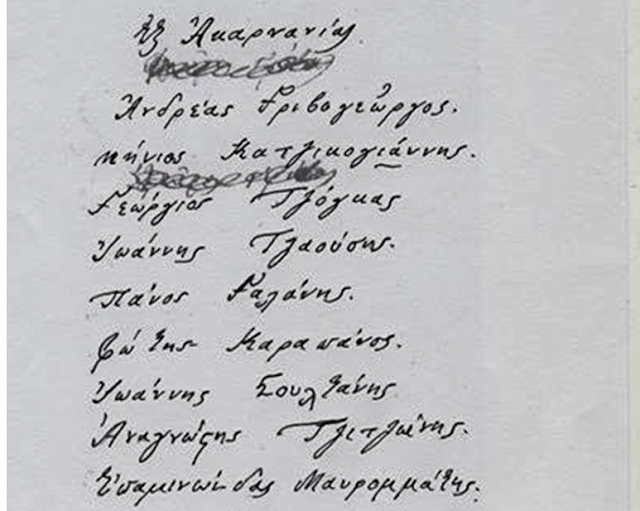 Ἐξ Ἀκαρνανίας
Ἀνδρέας Γριβογεῶργος.
πήνιος Κατζικογιάννης.
Γεώργιος Τζόγκας
Ἰωάννης Τζαούσης.
Πάνος Γαλάνης.
Φώτης Καραπάνος.
Ἰωάννης Σουλτάνης
Ἀναγνώστης Τζιτζώνης.
Ἐπαμινώνδας Μαυρομμάτης.